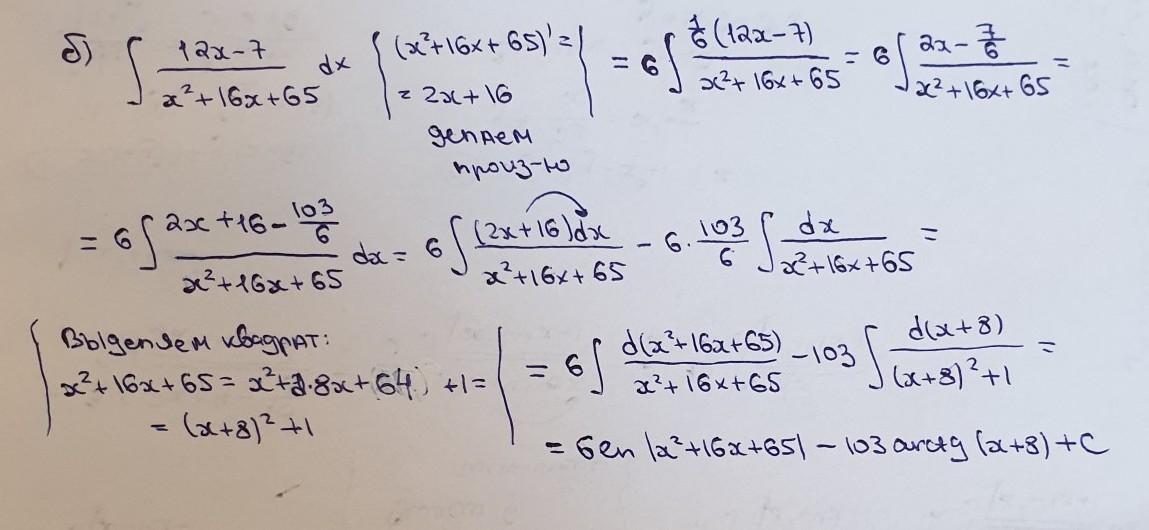 б) ∫ (12x-7)/(x²+16x+65) dx { (x²+16x+65)' = = 2x+16 } = 6∫ (1/6(12x-7))/(x²+16x+65) = 6∫ (2x - 7/6)/(x²+16x+65) =
делаем
произ-ю
= 6∫ (2x+16-103/6)/(x²+16x+65) dx = 6∫ ((2x+16)dx)/(x²+16x+65) - 6·103/6 ∫ dx/(x²+16x+65) =
{ Выделяем квадрат:
x²+16x+65 = x²+2·8x+64 +1 =
= (x+8)²+1 } = 6∫ d(x²+16x+65)/(x²+16x+65) - 103 ∫ d(x+8)/((x+8)²+1) =
= 6ln |x²+16x+65| - 103 arctg (x+8) + C